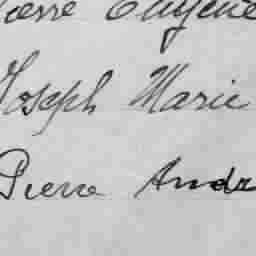 Pierre Eugène
Joseph Marie
Pierre Andr